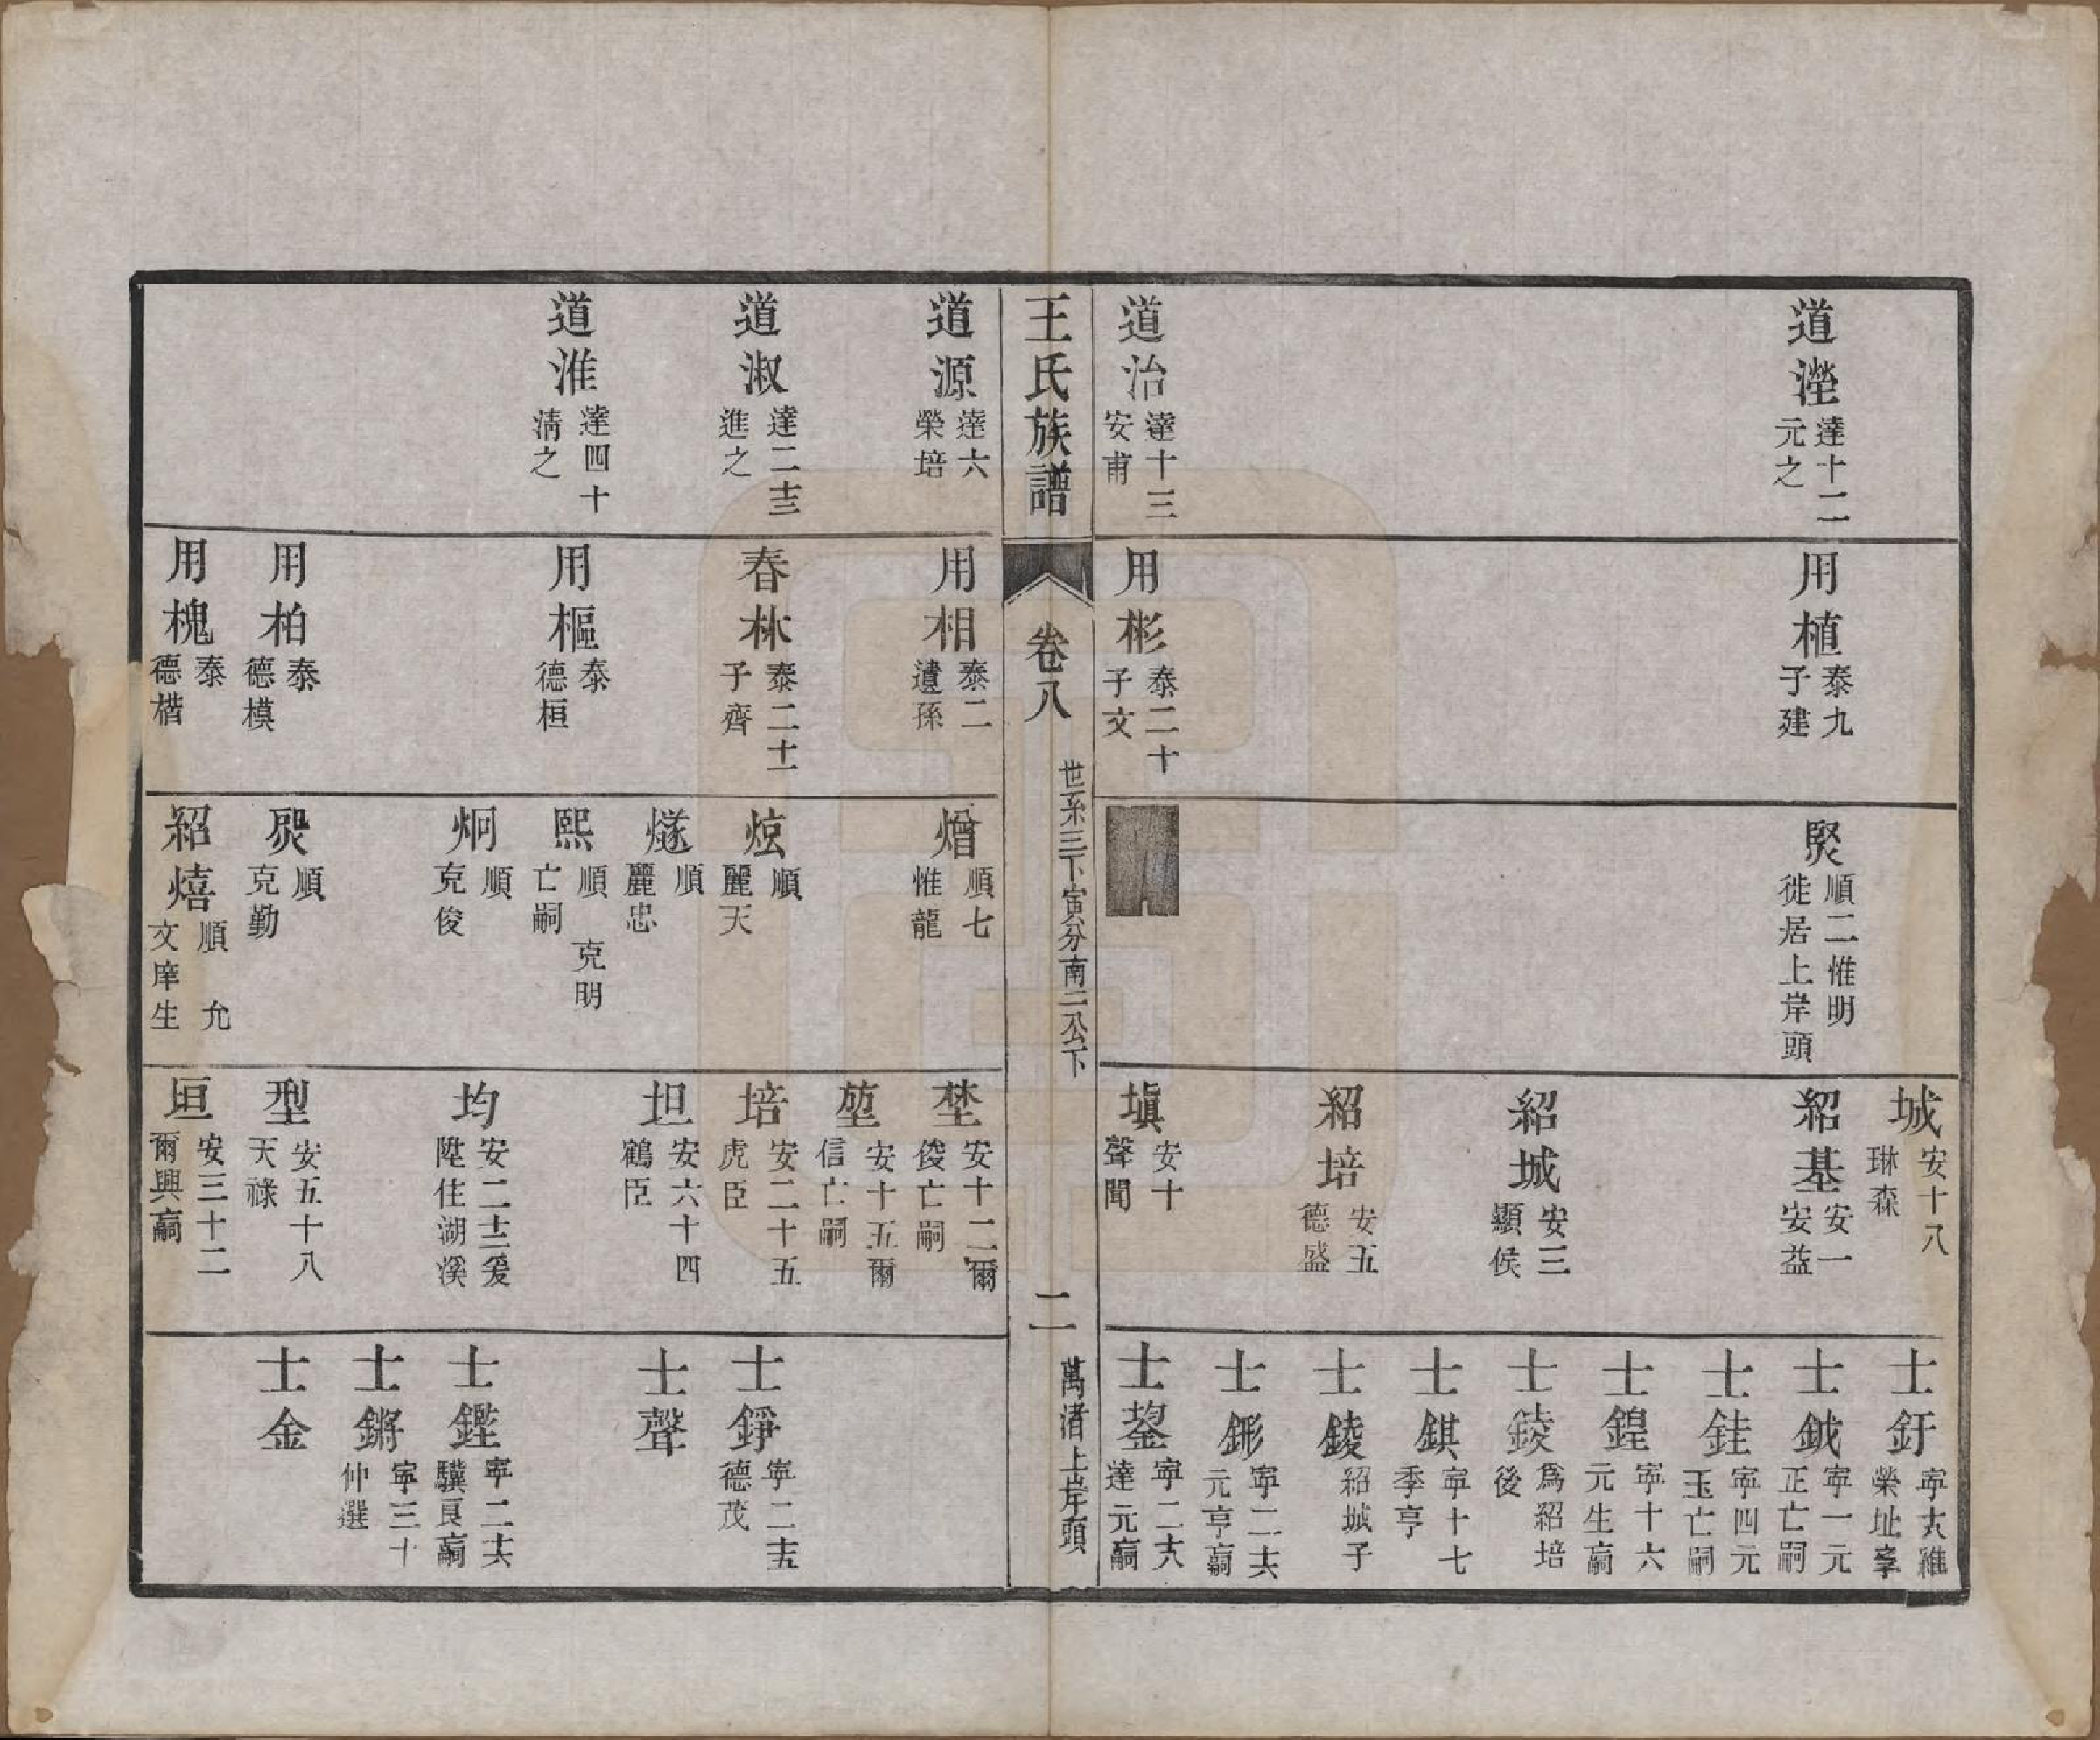 道瀅 達十二 元之
道治 達十三 安甫
用植 泰九 子建
用彬 泰二十 子文
煚 順二惟明 徙居上岸頭
城 安十八 琳森
紹基 安一 安益
紹城 安三 顯侯
紹培 安五 德盛
塡 安十 聲聞
士釪 榮址
士鉞 寕一元 正亡嗣
士銈 寕四元 玉亡嗣
士鍠 寕十六 元生
士錂 爲紹培 後
士錤 寕十七 季亨
士錂 紹城子
士鉖 元亨
士鋆 達元
王氏族譜
卷八
世系三下寅分南二公下
二
萬渚上岸頭
道源 達六 榮培
道淑 達二十三 進之
道淮 達四十 淸之
用相 泰二 遺孫
春林 泰二十一 子齊
用樞 泰 德桓
用柏 泰 德模
用槐 泰 德楷
熷 順七 惟龍
炫 順 麗天
燧 順 麗忠
熙 順 克明 亡嗣
炯 順 克俊
順 克勤
紹熺 順 允 文庠生
埜 安十二爾 俊亡嗣
堃 安十五爾 信亡嗣
培 安二十五 虎臣
坦 安六十四 鶴臣
均 安二十三爰 陞住湖溪
型 安五十八 天祿
垣 安三十二 爾興
士錚 寕二十五 德茂
士聲
士鏗 寕二十六 驥良
士鏘 寕三十 仲選
士金